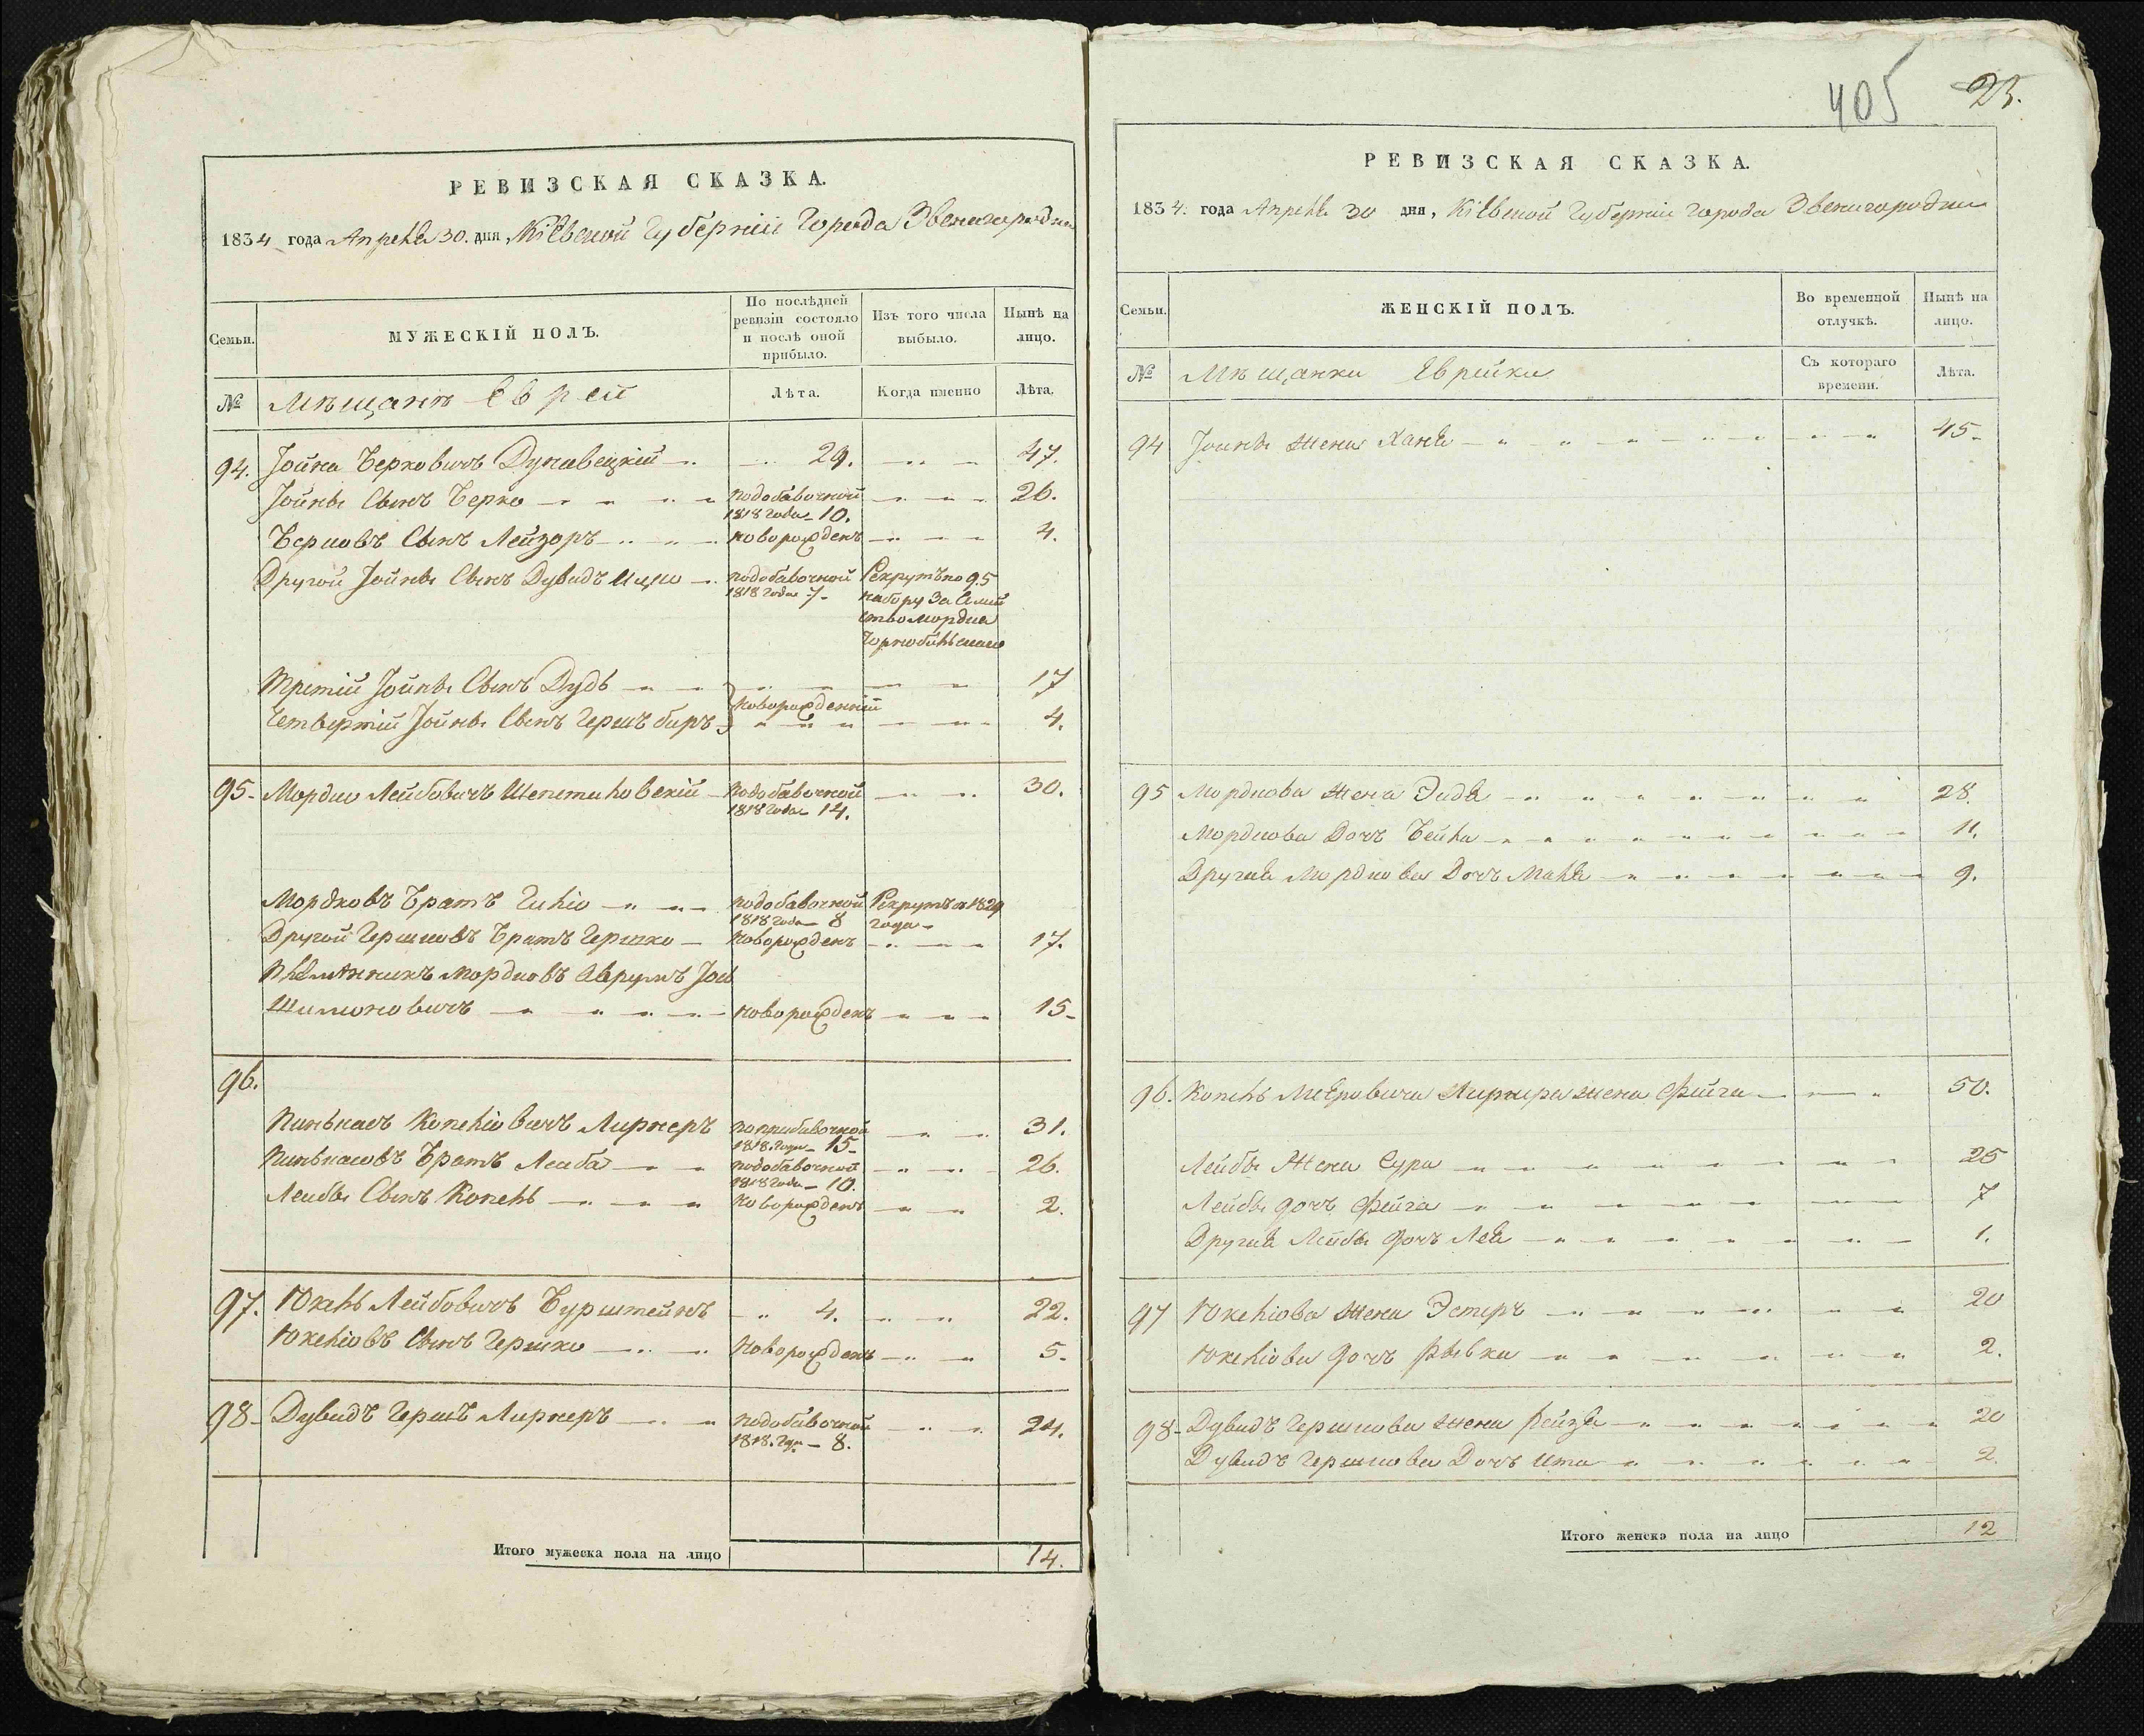 РЕВИЗСКАЯ СКАЗКА.
1834 года Апреля 30. дня, Кіевской Губерніи Города Звенигородки
Семьи.
МУЖЕСКІЙ ПОЛЪ.
По послѣдней ревизіи состояло и послѣ оной прибыло.
Изъ того числа выбыло.
Нынѣ на лицо.
№
Мѣщане Евреи
Лѣта.
Когда именно
Лѣта.
94. Іойна Берковичъ Дунавецкій 29. 47.
Іойны Сынъ Берко подобавочной 1818 года 10. 26.
Берковъ Сынъ Лейзоръ новорожденъ 4.
Другой Іойны Сынъ Дувидъ Ицко подобавочной 1818 года 7. Рекрутъ по 95
набору за
Мордка
Третій Іойны Сынъ Дудь 17
новорожденній
Четвертій Іойны Сынъ Гершъ беръ 4.
95. Мордко Лейбовичъ Шепетиловскій подобавочной 1818 года 14. 30.
Мордковъ Братъ Гилю подобавочной 1818 года 8 Рекрутъ 1829 года
Другой Гершковъ Братъ Гершко новорожденъ 17.
Племянникъ Мордковъ Аврумъ Іось
Шимоновичъ новорожденъ 15
96.
Пинькасъ Копеліовичъ Лирнеръ 1818 года 15 31.
Пинькасовъ Братъ Лейба подобавочной 1818 года 10. 26.
Лейбы Сынъ Копель новорожденъ 2.
97. Юкель Лейбовичъ Бурштейнъ 4. 22.
Юкеліовъ Сынъ Гершко новорожденъ 5.
98 Дувидъ Гершъ Лирнеръ подобавочной 1818 года 8. 24.
Итого мужеска пола на лицо 14.
405 23.
РЕВИЗСКАЯ СКАЗКА.
1834. года Апреля 30 дня, Кіевской Губерніи Города Звенигородки
Семьи.
ЖЕНСКІЙ ПОЛЪ.
Во временной отлучкѣ.
Нынѣ на лицо.
№
Мѣщанки Еврейки
Съ котораго времени.
Лѣта.
94 Іойны жена Ханя 45
95 Мордкова жена Эидя 28.
Мордкова Дочъ Бейла 11.
Другая Мордкова Дочъ Маля 9.
96. Копель Меѣровича Лирнера жена Фейга 50.
Лейбы Жена Сура 25
Лейбы дочъ Фейга 7
Другая Лейбы дочъ Лея 1.
97 Юкеліова жена Эстеръ 20
Юкеліова дочъ Рывка 2.
98 Дувидъ Гершкова жена Рейзя 20
Дувидъ Гершкова Дочъ Ита 2.
Итого женска пола на лицо 12